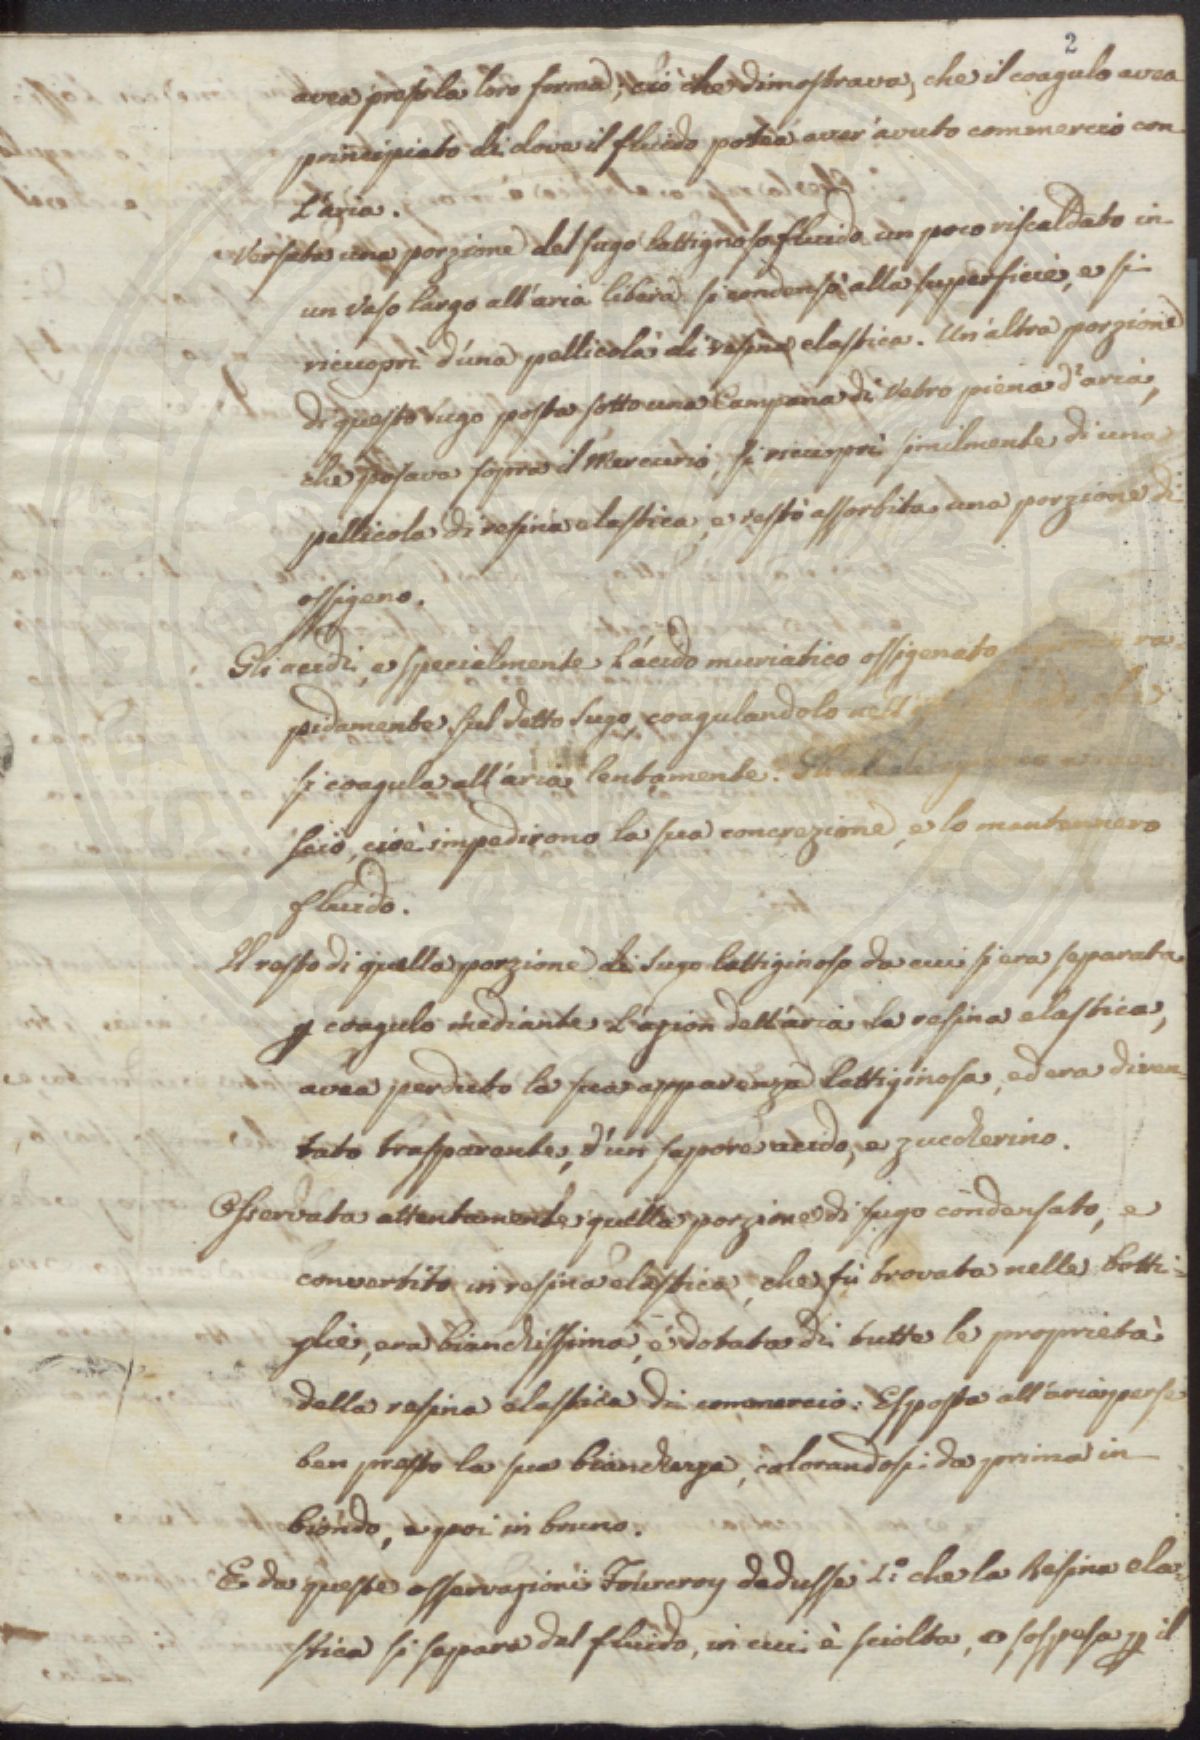 2
avea preso la loro forma; ciò che dimostrava, che il coagulo avea
principiato di dove il fluido potea aver avuto commercio con
l'aria.
Versata una porzione del sugo lattignoso fluido un poco riscaldato in
un vaso largo all'aria libera si condensò alla superficie, e si
ricuoprì d'una pellicola di resina elastica. Un'altra porzione
di questo sugo posta sotto una Campana di Vetro piena d'aria,
che posava sopra il Mercurio, si ricuoprì similmente di una
pellicola di resina elastica, e restò assorbita una porzione di
ossigeno.
Gli acidi, e specialmente l'acido muriatico ossigenato ra-
pidamente sul detto sugo, coagulandolo che
si coagula all'aria lentamente. Gli alcali
scio, cioè impedirono la sua concrezione, e lo mantennero
fluido.
Il resto di quella porzione di sugo lattiginoso da cui si era separata
p coagulo mediante l'azion dell'aria la resina elastica,
avea perduto la sua apparenza lattiginosa, ed era diven-
tato trasparente, d'un sapore acido, e zuccherino.
Osservata attentamente quella porzione di sugo condensato, e
convertito in resina elastica, che fù trovata nelle botti-
glie, era bianchissima, e dotata di tutte le proprietà
della resina elastica di commercio. Esposta all'aria perse
ben presto la sua bianchezza, colorandosi da prima in
biondo, e poi in bruno.
E da queste osservazioni Fourcroy dedusse 1.° che la Resina ela-
stica si separa dal fluido, in cui è sciolta, o sospesa p il